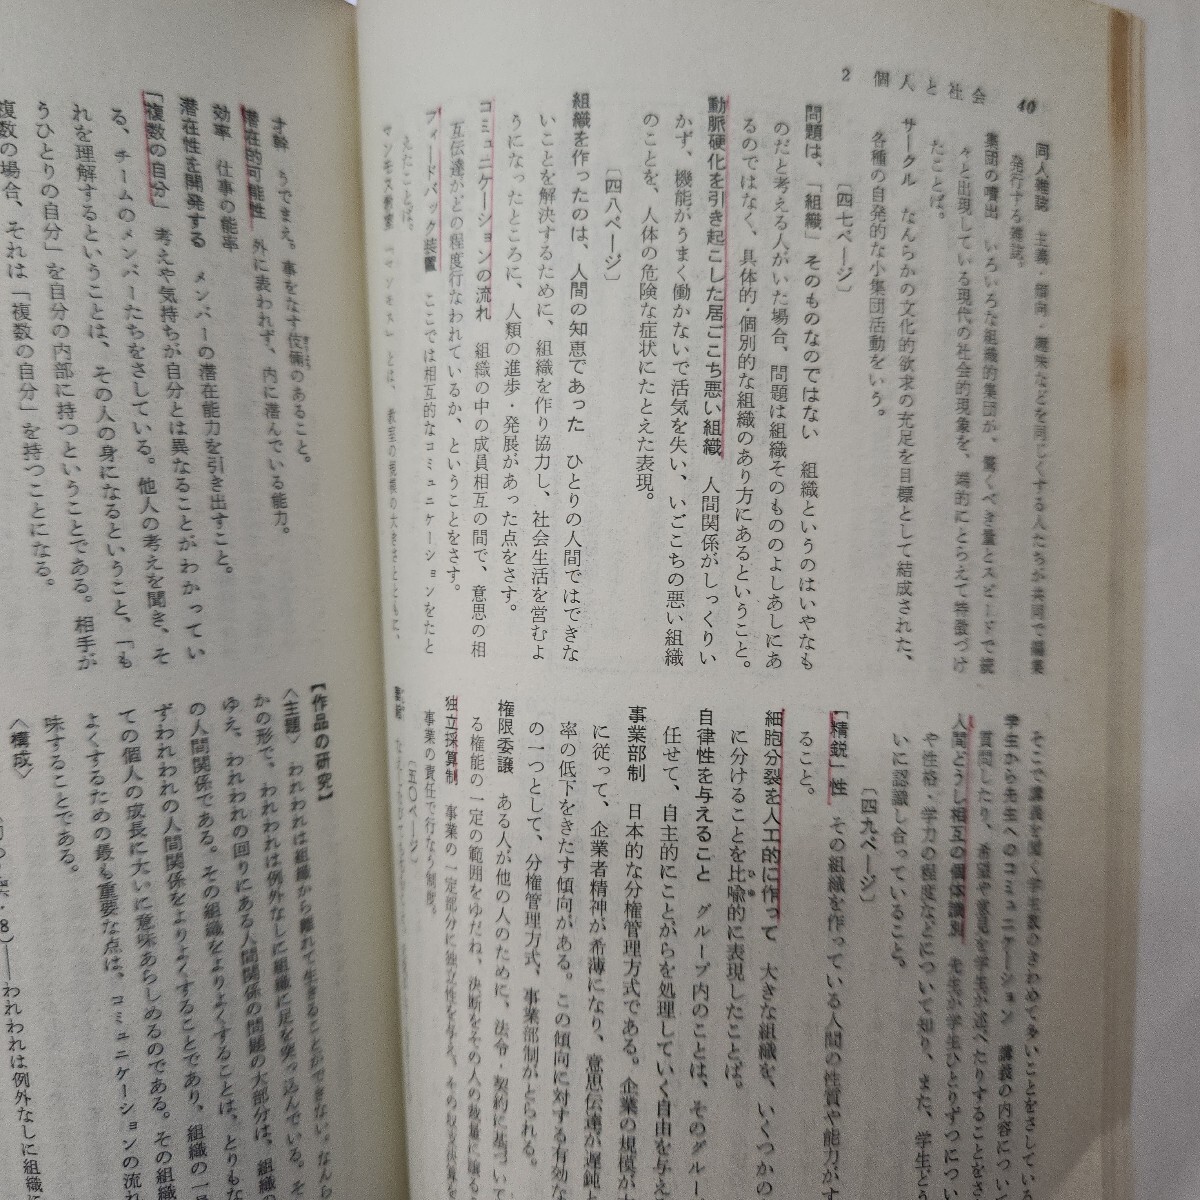 40
2 個人と社会
同人雑誌 主義・傾向・趣味などを同じくする人たちが共同で編集
発行する雑誌。
集団の噴出 いろいろな組織的集団が、驚くべき量とスピードで続
々と出現している現代の社会的現象を、端的にとらえて特徴づけ
たことば。
サークル なんらかの文化的欲求の充足を目標として結成された、
各種の自発的な小集団活動をいう。
〔四七ページ〕
問題は、「組織」そのものなのではない 組織というのはいやなも
のだと考える人がいた場合、問題は組織そのもののよしあしにあ
るのではなく、具体的・個別的な組織のあり方にあるということ。
動脈硬化を引き起こした居ごこち悪い組織 人間関係がしっくりい
かず、機能がうまく働かないで活気を失い、いごこちの悪い組織
のことを、人体の危険な症状にたとえた表現。
〔四八ページ〕
組織を作ったのは、人間の知恵であった ひとりの人間ではできな
いことを解決するために、組織を作り協力し、社会生活を営むよ
うになったところに、人類の進歩・発展があった点をさす。
コミュニケーションの流れ 組織の中の成員相互の間で、意思の相
互伝達がどの程度行なわれているか、ということをさす。
フィードバック装置 ここでは相互的なコミュニケーションをたと
えたことば。
マンモス教室 「マンモス」とは、教室の規模の大きさとともに、
そこで講義を聞く学生数のきわめて多いことをさしている
学生から先生へのコミュニケーション 講義の内容につい
質問したり、希望や意見を学生が述べたりすることをさ
人間どうし相互の個体識別 先生が学生ひとりずつについ
や性格・学力の程度などについて知り、また、学生どう
いに認識し合っていること。
〔四九ページ〕
「精鋭」性 その組織を作っている人間の性質や能力がす
ること。
細胞分裂を人工的に作って 大きな組織を、いくつかの
に分けることを比喩的に表現したことば。
自律性を与えること グループ内のことは、そのグルー
任せて、自主的にことがらを処理していく自由を与え
事業部制 日本的な分権管理方式である。企業の規模が
に従って、企業者精神が希薄になり、意思伝達が遅鈍と
率の低下をきたす傾向がある。この傾向に対する有効な
の一つとして、分権管理方式、事業部制がとられる。
権限委譲 ある人が他の人のために、法令・契約に基づいて
る権能の一定の範囲をゆだね、決断をその人の裁量に
独立採算制 事業の一定部分に独立性を与え、その収支決算を
事業の責任で行なう制度。
〔五〇ページ〕
才幹 うでまえ。事をなす伎倆のあること。
潜在的可能性 外に表われず、内に潜んでいる能力。
効率 仕事の能率
潜在性を開発する メンバーの潜在能力を引き出すこと。
「複数の自分」 考えや気持ちが自分とは異なることがわかってい
る、チームのメンバーたちをさしている。他人の考えを聞き、そ
れを理解するということは、その人の身になるということ、「も
うひとりの自分」を自分の内部に持つということである。相手が
複数の場合、それは「複数の自分」を持つことになる。
【作品の研究】
〈主題〉 われわれは組織から離れて生きることができない。なんら
かの形で、われわれは例外なしに組織に足を突っ込んでいる。そ
ゆえ、われわれの回りにある人間関係の問題の大部分は、組織
の人間関係である。その組織をよりよくすることは、とりもな
ずわれわれの人間関係をよりよくすることであり、組織の一
ての個人の成長に大いに意味あらしめるのである。その組
よくするための最も重要な点は、コミュニケーションの流れ
味することである。
〈構成〉
8）――われわれは例外なしに組織に